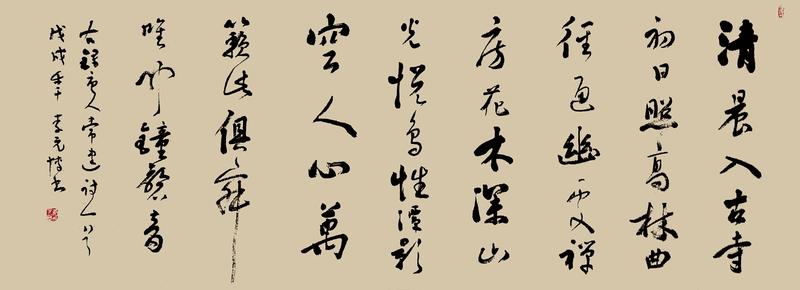 清晨入古寺
初日照高林曲
徑通幽處禪
房花木深山
光悦鳥性潭影
空人心萬
籟此俱寂
唯聞鐘磬音
右録唐人常建詩一首
戊戌年李元書